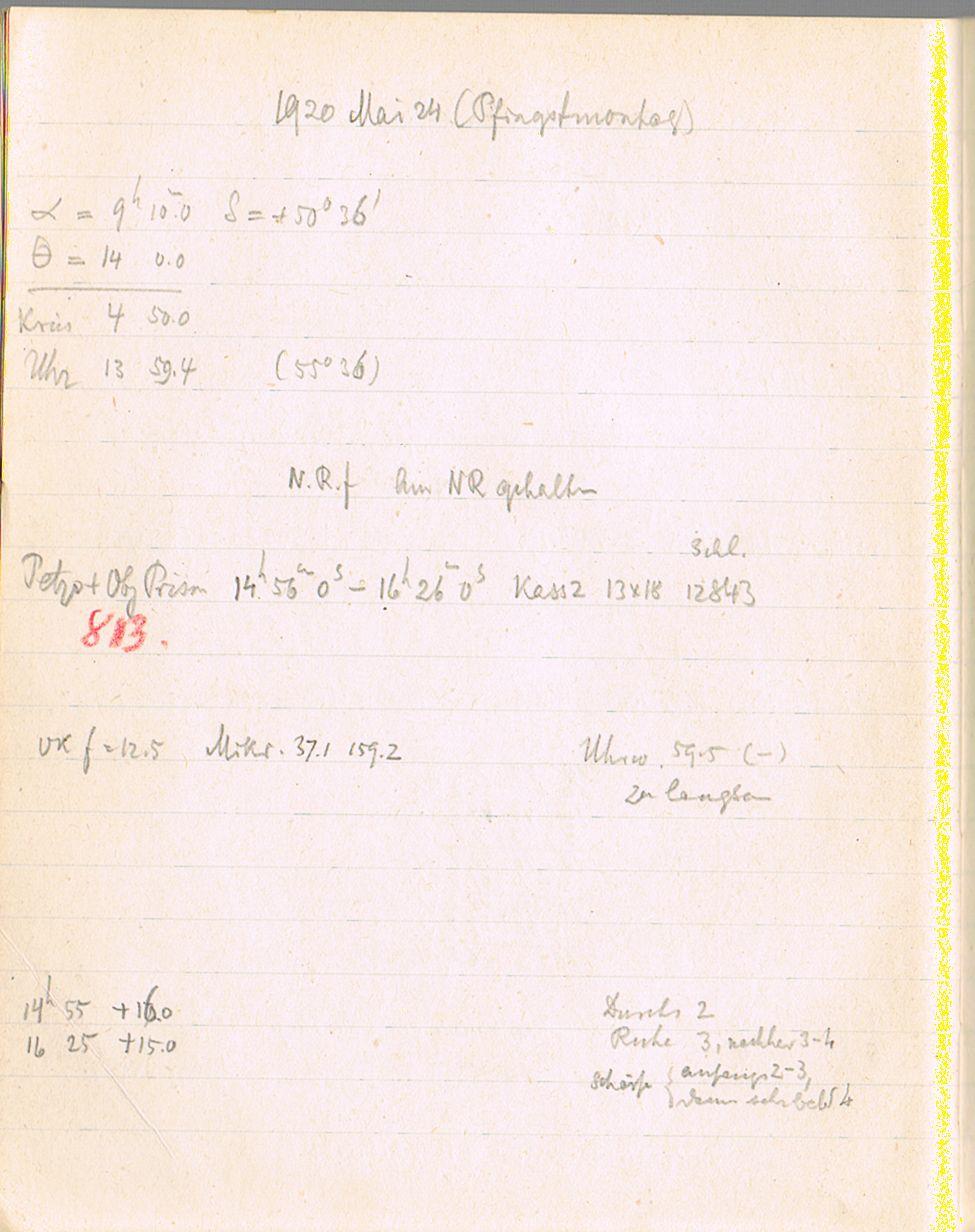 1920 Mai 24 (Pfingstmontag)
α = 9h 10m.0 δ = +50° 36'
θ = 14 0.0
Kreis 4 50.0
Uhr 13 59.4 (55° 36)
N.R.f Am NR gehalten
Schl.
Petzv + Obj Prism 14h 56m 0s – 16h 26m 0s Kass 2 13x18 12843
813.
VK f = 12.5 Mikr. 37.1 159.2 Uhrw. 59.5 (–)
zu langsam
14h 55 +16.0 Durchs 2
16 25 +15.0 Ruhe 3, nachher 3-4
Schärfe { anfangs 2-3,
dann sehr bald 4